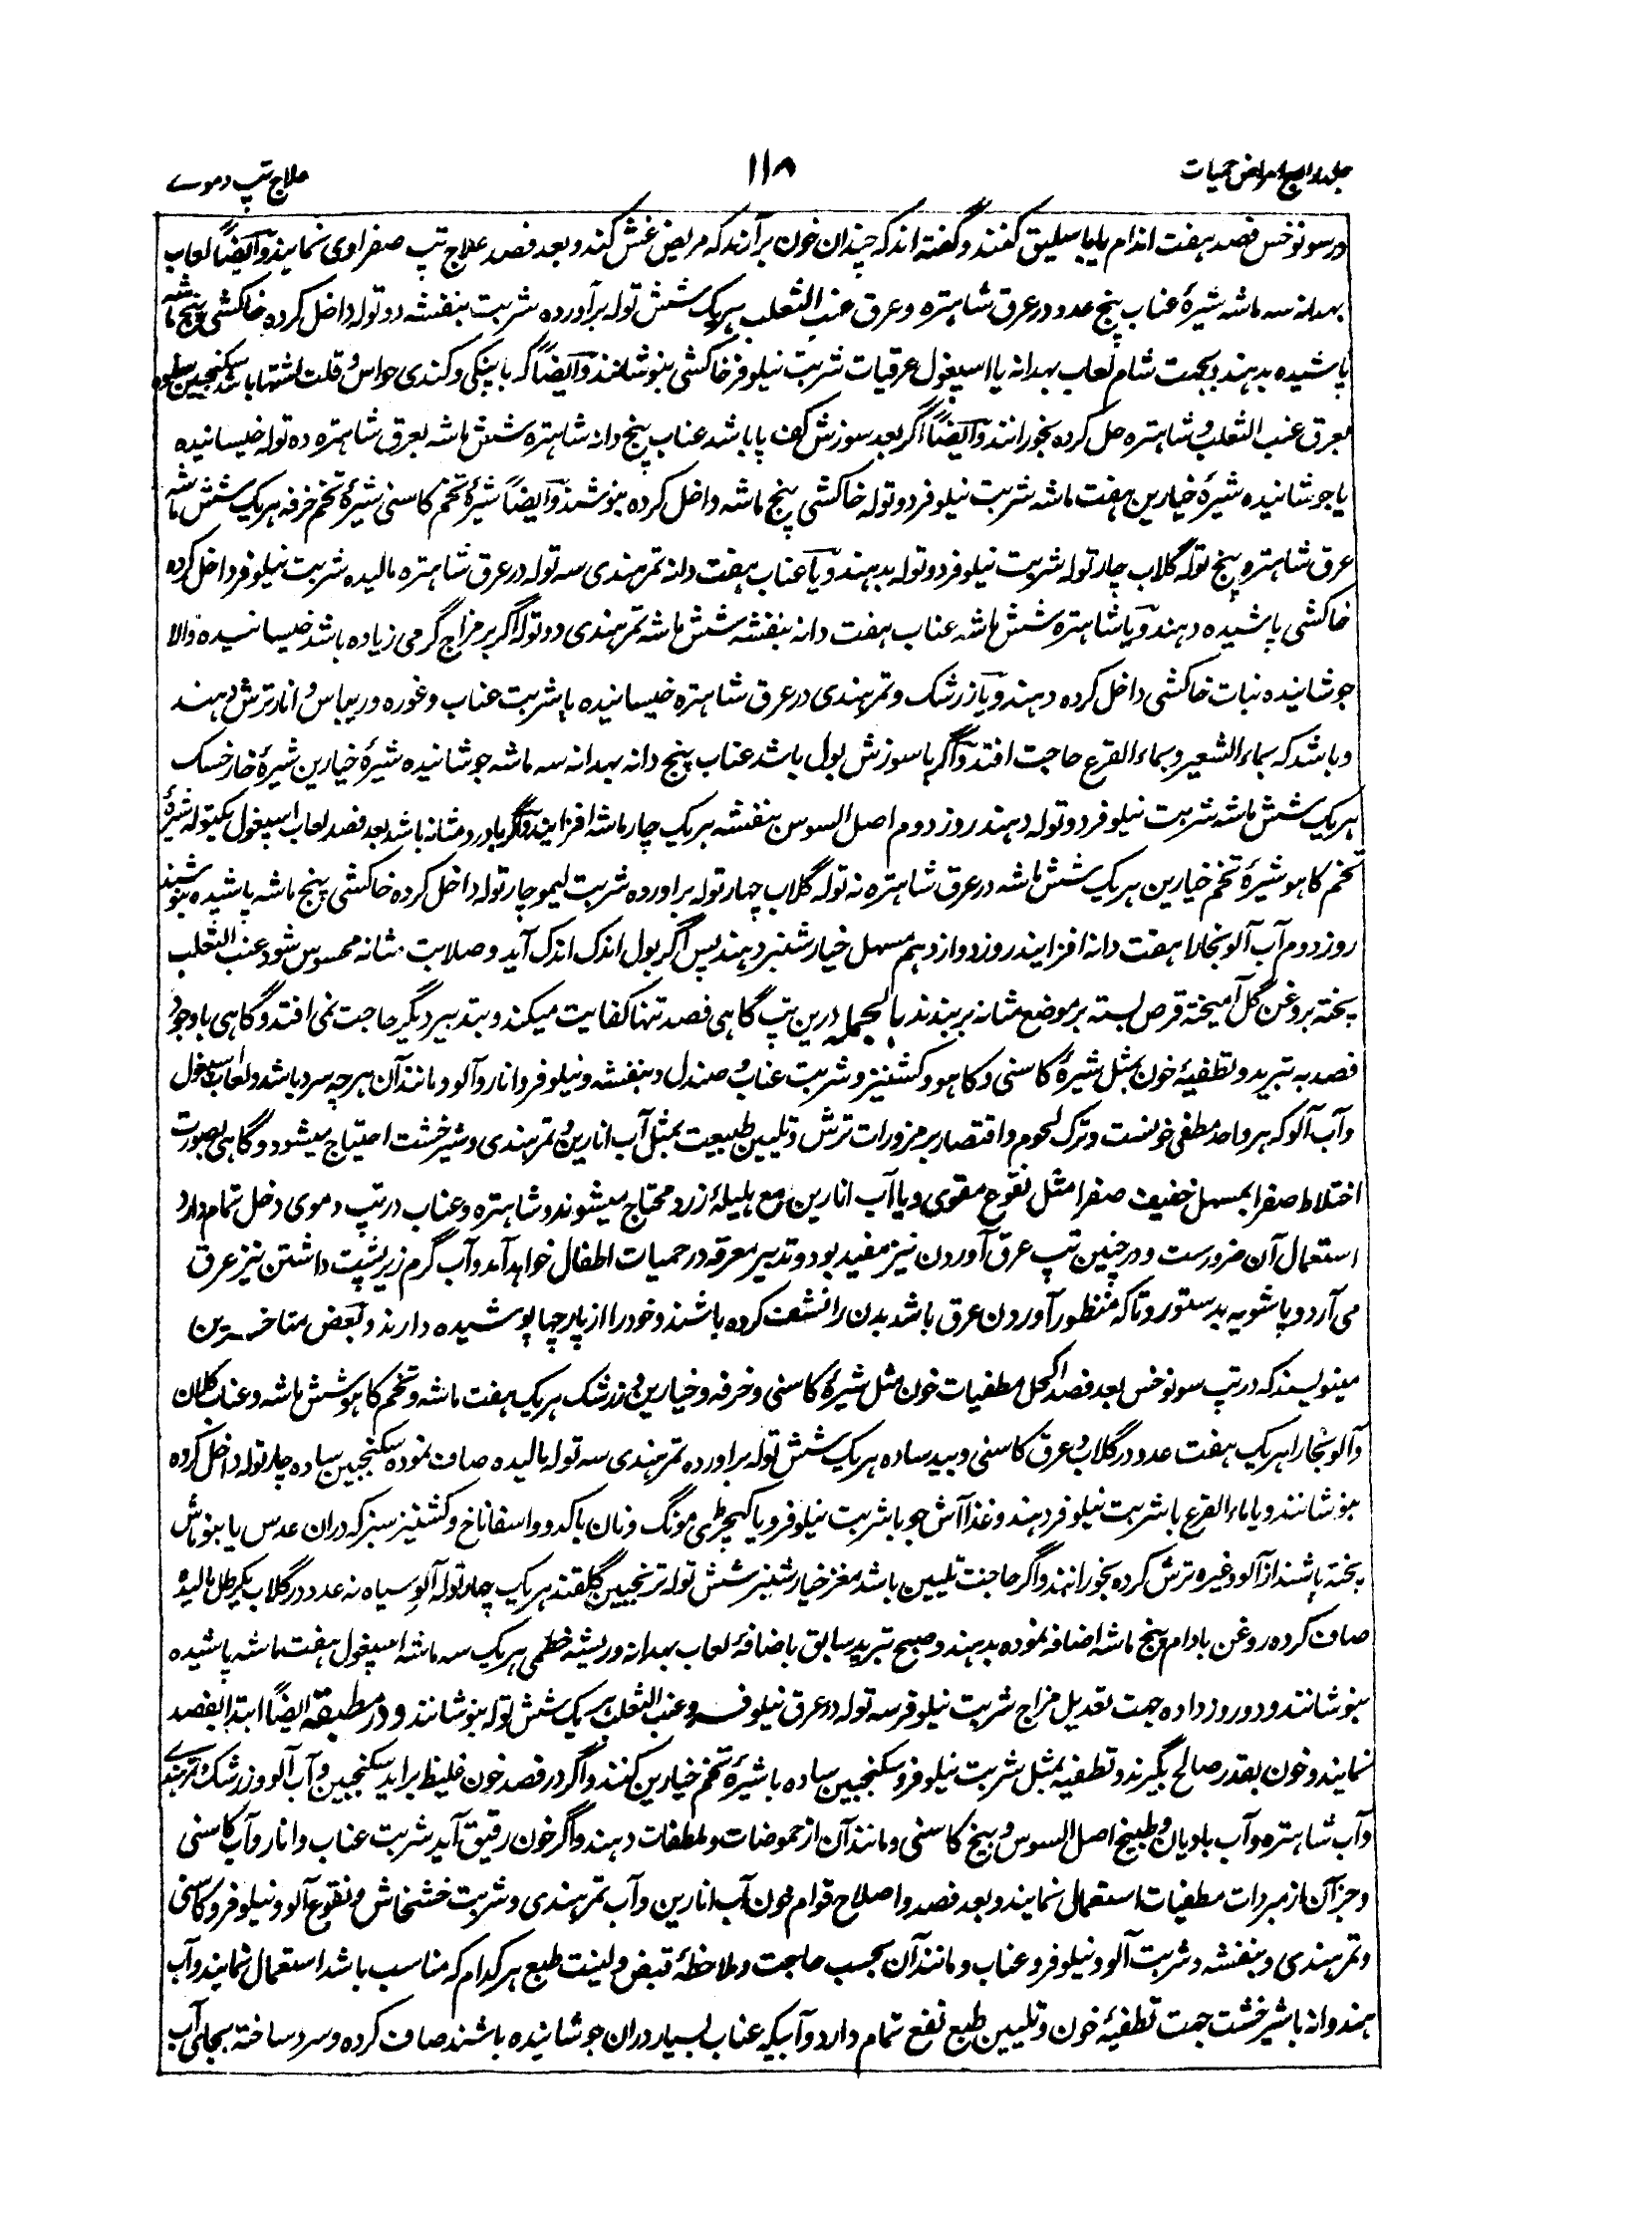 جلد رابع امراض حمیات
۱۱۸
علاج تپ دموے
در سونوخس فصد ہفت اندام یا باسلیق کنند و گفتہ اند کہ چندان خون برآرند کہ مریض غش کند و بعد فصد علاج تپ صفراوی نمایند و ایضاً لعاب
بہدانہ سہ ماشہ شیرۂ عناب پنج عدد در عرق شاہترہ و عرق عنب الثعلب ہریک شش تولہ برآوردہ شربت بنفشہ دو تولہ داخل کردہ خاکشی پنج ماشہ
پاشیدہ بدہند و بجہت شام لعاب بہدانہ یا اسپغول عرقیات شربت نیلوفر خاکشی بنوشانند و ایضاً گر با پینکی و کندی حواس و قلت اشتہا باشد سکنجبین سادہ
بعرق عنب الثعلب و شاہترہ حل کردہ بخورانند و ایضاً اگر بعد سوزش کف پا باشد عناب پنج دانہ شاہترہ شش ماشہ بعرق شاہترہ دہ تولہ خیسانیدہ
یا جوشانیدہ شیرۂ خیارین ہفت ماشہ شربت نیلوفر دو تولہ خاکشی پنج ماشہ داخل کردہ بنوشند و ایضاً شیرۂ تخم کاسنی شیرۂ تخم خرفہ ہریک شش ماشہ
عرق شاہترہ پنج تولہ گلاب چار تولہ شربت نیلوفر دو تولہ بدہند و یا عناب ہفت دانہ تمرہندی سہ تولہ در عرق شاہترہ مالیدہ شربت نیلوفر داخل کردہ
خاکشی پاشیدہ دہند و یا شاہترہ شش ماشہ عناب ہفت دانہ بنفشہ شش ماشہ تمرہندی دو تولہ اگر بر مزاج گرمی زیادہ باشد خیسانیدہ والا
جوشانیدہ نبات خاکشی داخل کردہ دہند و یا زرشک و تمرہندی در عرق شاہترہ خیسانیدہ با شربت عناب و غورہ و ریباس و انار ترش دہند
و باشد کہ بماء الشعیر و بماء القرع حاجت افتد و اگر با سوزش بول باشد عناب پنج دانہ بہدانہ سہ ماشہ جوشانیدہ شیرۂ خیارین شیرۂ خارخسک
ہریک شش ماشہ شربت نیلوفر دو تولہ دہند روز دوم اصل السوس بنفشہ ہریک چار ماشہ افزایند و اگر با درد مثانہ باشد بعد فصد لعاب اسپغول یکتولہ شیرۂ
تخم کاہو شیرۂ تخم خیارین ہریک شش ماشہ در عرق شاہترہ نہ تولہ گلاب چہار تولہ برآوردہ شربت لیمو چار تولہ داخل کردہ خاکشی پنج ماشہ پاشیدہ بنوشند
روز دوم آب آلو بخارا ہفت دانہ افزایند روز دوازدہم مسہل خیارشنبر دہند پس اگر بول اندک اندک آید و صلابت مثانہ محسوس شود عنب الثعلب
پختہ بروغن گل آمیختہ قرص بستہ بر موضع مثانہ بربندند بالجملہ درین تپ گاہی فصد تنہا کفایت میکند و بتدبیر دیگر حاجت نمی افتد و گاہی باوجود
فصد بہ تبرید و تطفیۂ خون بمثل شیرۂ کاسنی و کاہو و کشنیز و شربت عناب و صندل و بنفشہ و نیلوفر و انار و آلو و مانند آن ہرچہ سرد باشد و لعاب اسپغول
و آب آلو کہ ہر واحد مطفی خونست و ترک لحوم و اقتصار بر مزورات ترش و تلیین طبیعت بمثل آب انارین و تمرہندی و شیرخشت احتیاج میشود و گاہی بصورت
اختلاط صفرا بمسہل خفیف صفرا مثل نقوع مقوی و یا آب انارین مع ہلیلۂ زرد محتاج میشوند و شاہترہ و عناب در تپ دموی دخل تمام دارد
استعمال آن ضرورست و در چنین تپ عرق آوردن نیز مفید بود و تدبیر معرقہ در حمیات اطفال خواہد آمد و آب گرم زیر پشت داشتن نیز عرق
می آرد و پاشویہ بدستور و تا کہ منظور آوردن عرق باشد بدن را نشف کردہ باشند و خود را از پارچہا پوشیدہ دارند و بعض متاخرین
مینویسند کہ در تپ سونوخس بعد فصد اکحل مطفیات خون مثل شیرۂ کاسنی و خرفہ و خیارین و زرشک ہریک ہفت ماشہ و تخم کاہو شش ماشہ و عناب کلان
و آلو بخارا ہریک ہفت عدد در گلاب و عرق کاسنی و بید سادہ ہریک شش تولہ برآوردہ تمرہندی سہ تولہ مالیدہ صاف نمودہ سکنجبین سادہ چار تولہ داخل کردہ
بنوشانند و یا ماء القرع با شربت نیلوفر دہند و غذا آش جو با شربت نیلوفر و یا کہچڑی مونگ و نان با کدو و اسفاناخ و کشنیز سبز کہ دران عدس یا بنوماش
پختہ باشند از آلو وغیرہ ترش کردہ بخورانند و اگر حاجت تلیین باشد مغز خیارشنبر شش تولہ ترنجبین گلقند ہریک چار تولہ آلو سیاہ نہ عدد در گلاب یکرطل مالیدہ
صاف کردہ روغن بادام پنج ماشہ اضافہ نمودہ بدہند و صبح تبرید سابق باضافۂ لعاب بہدانہ و ریشہ خطمی ہریک سہ ماشہ اسپغول ہفت ماشہ پاشیدہ
بنوشانند و دو روز دادہ جہت تعدیل مزاج شربت نیلوفر سہ تولہ در عرق نیلوفر و عنب الثعلب ہریک شش تولہ بنوشانند و در مطبقہ ایضاً ابتدا بفصد
نمایند و خون بقدر صالح بگیرند و تطفیہ بمثل شربت نیلوفر و سکنجبین سادہ با شیرۂ تخم خیارین کنند و اگر در فصد خون غلیظ براید سکنجبین و آب آلو و زرشک و تمرہندے
و آب شاہترہ و آب بادیان و طبیخ اصل السوس و بیخ کاسنی و مانند آن از حموضات و ملطفات دہند و اگر خون رقیق آید شربت عناب و انار و آب کاسنی
و جز آن از مبردات مطفیات استعمال نمایند و بعد فصد و اصلاح قوام خون آب انارین و آب تمرہندی و شربت خشخاش و نقوع آلو و نیلوفر و کاسنی
و تمرہندی و بنفشہ و شربت آلو و نیلوفر و عناب و مانند آن بحسب حاجت و ملاحظۂ قبض و لینت طبع ہر کدام کہ مناسب باشد استعمال نمایند و آب
ہندوانہ با شیرخشت جہت تطفیۂ خون و تلیین طبع نفع تمام دارد و آبیکہ عناب بسیار دران جوشانیدہ باشند صاف کردہ و سرد ساختہ بجای آب